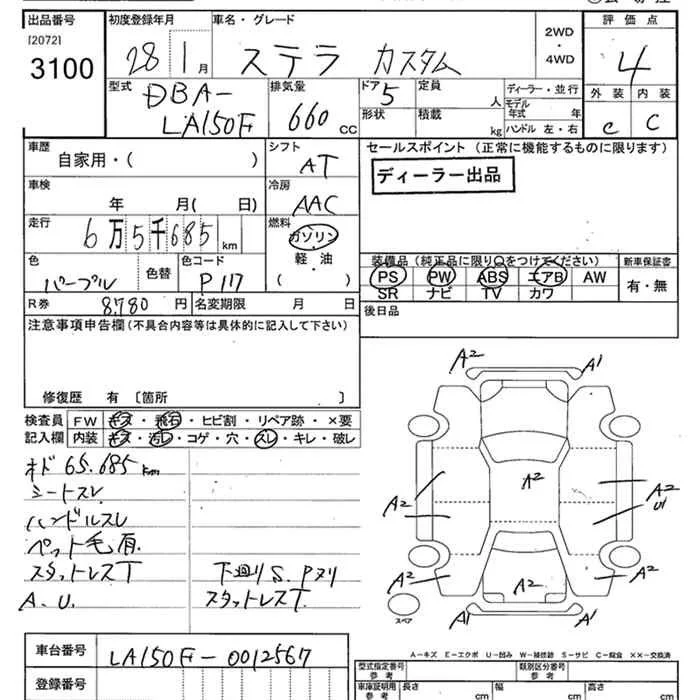 出品番号 初度登録年月 車名・グレード 評価点
[2072]
3100 28 1月 ステラ カスタム 2WD・4WD 4
型式 排気量 ドア 定員 ディーラー・並行 外装 内装
DBA-LA150F 660cc 5 人 モデル年式 年 C C
形状 積載 kg ハンドル 左・右
車歴 シフト セールスポイント (正常に機能するものに限ります)
自家用・( ) AT ディーラー出品
車検 冷房
年 月( 日) AAC
走行 燃料
6万5千685km ガソリン
軽・油
( )
色 色替 色コード
パープル P117
装備品(純正品に限り○をつけてください) 新車保証書
PS PW ABS エアB AW 有・無
SR ナビ TV カワ
R券 8,780円 名変期限 月 日 後日品
注意事項申告欄(不具合内容等は具体的に記入して下さい)
修復歴 有 〔箇所 〕
検査員 FW キズ・飛石・ヒビ割・リペア跡・×要
記入欄 内装 キズ・汚レ・コゲ・穴・スレ・キレ・破レ
オド 65.685km
シートスレ
ハンドルスレ
ペット毛有.
スタットレスT 下廻りS.Pヌリ
A.U. スタットレスT.
A2 A1
A2
A2 A2
U1
A2 A2 A2
A1 A1
スペア
A-キズ E-エクボ U-凹み W-補修跡 S-サビ C-腐食 ××-交換済
車台番号 LA150F-0012567
登録番号
型式指定番号 参考 類別区分番号 参考
車庫証明用 参考 長さ cm 幅 cm 高さ cm